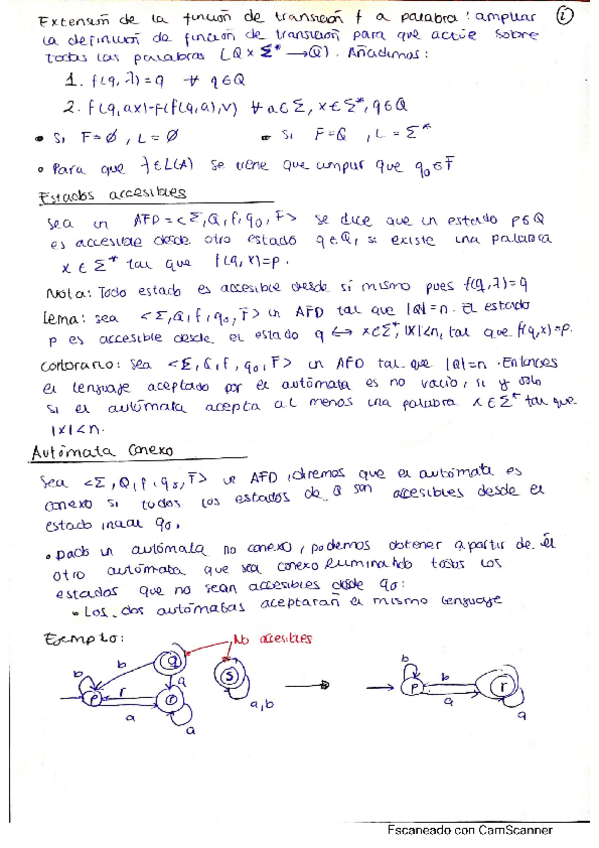 Extensión de la función de transición f a palabra: ampliar
la definición de función de transición para que actúe sobre
todas las palabras (Q × Σ* → Q). Añadimos:
1. f(q, λ) = q ∀ q∈Q
2. f(q, ax) = f(f(q,a),v) ∀ a∈Σ, x∈Σ*, q∈Q
• Si F=Ø, L=Ø • Si F=Q, L=Σ*
• Para que λ∈L(A) se tiene que cumplir que q₀∈F
Estados accesibles
Sea un AFD=<Σ, Q, f, q₀, F> se dice que un estado p∈Q
es accesible desde otro estado q∈Q, si existe una palabra
x ∈ Σ* tal que f(q, x)=p.
Nota: Todo estado es accesible desde sí mismo pues f(q, λ)=q
Lema: sea <Σ, Q, f, q₀, F> un AFD tal que |Q|=n. El estado
p es accesible desde el estado q ↔ x∈Σ*, |x|<n, tal que f(q,x)=p.
Corolario: sea <Σ, Q, f, q₀, F> un AFD tal que |Q|=n. Entonces
el lenguaje aceptado por el autómata es no vacío, si y solo
si el autómata acepta al menos una palabra x ∈ Σ* tal que
|x|<n.
Autómata conexo
Sea <Σ, Q, f, q₀, F> un AFD, diremos que el autómata es
conexo si todos los estados de Q son accesibles desde el
estado inicial q₀.
• Dado un autómata no conexo, podemos obtener a partir de él
otro autómata que sea conexo eliminando todos los
estados que no sean accesibles desde q₀:
• Los dos autómatas aceptarán el mismo lenguaje
Ejemplo:
No accesibles
b b q a s a,b
p r a r a
b p b a r a
Escaneado con CamScanner